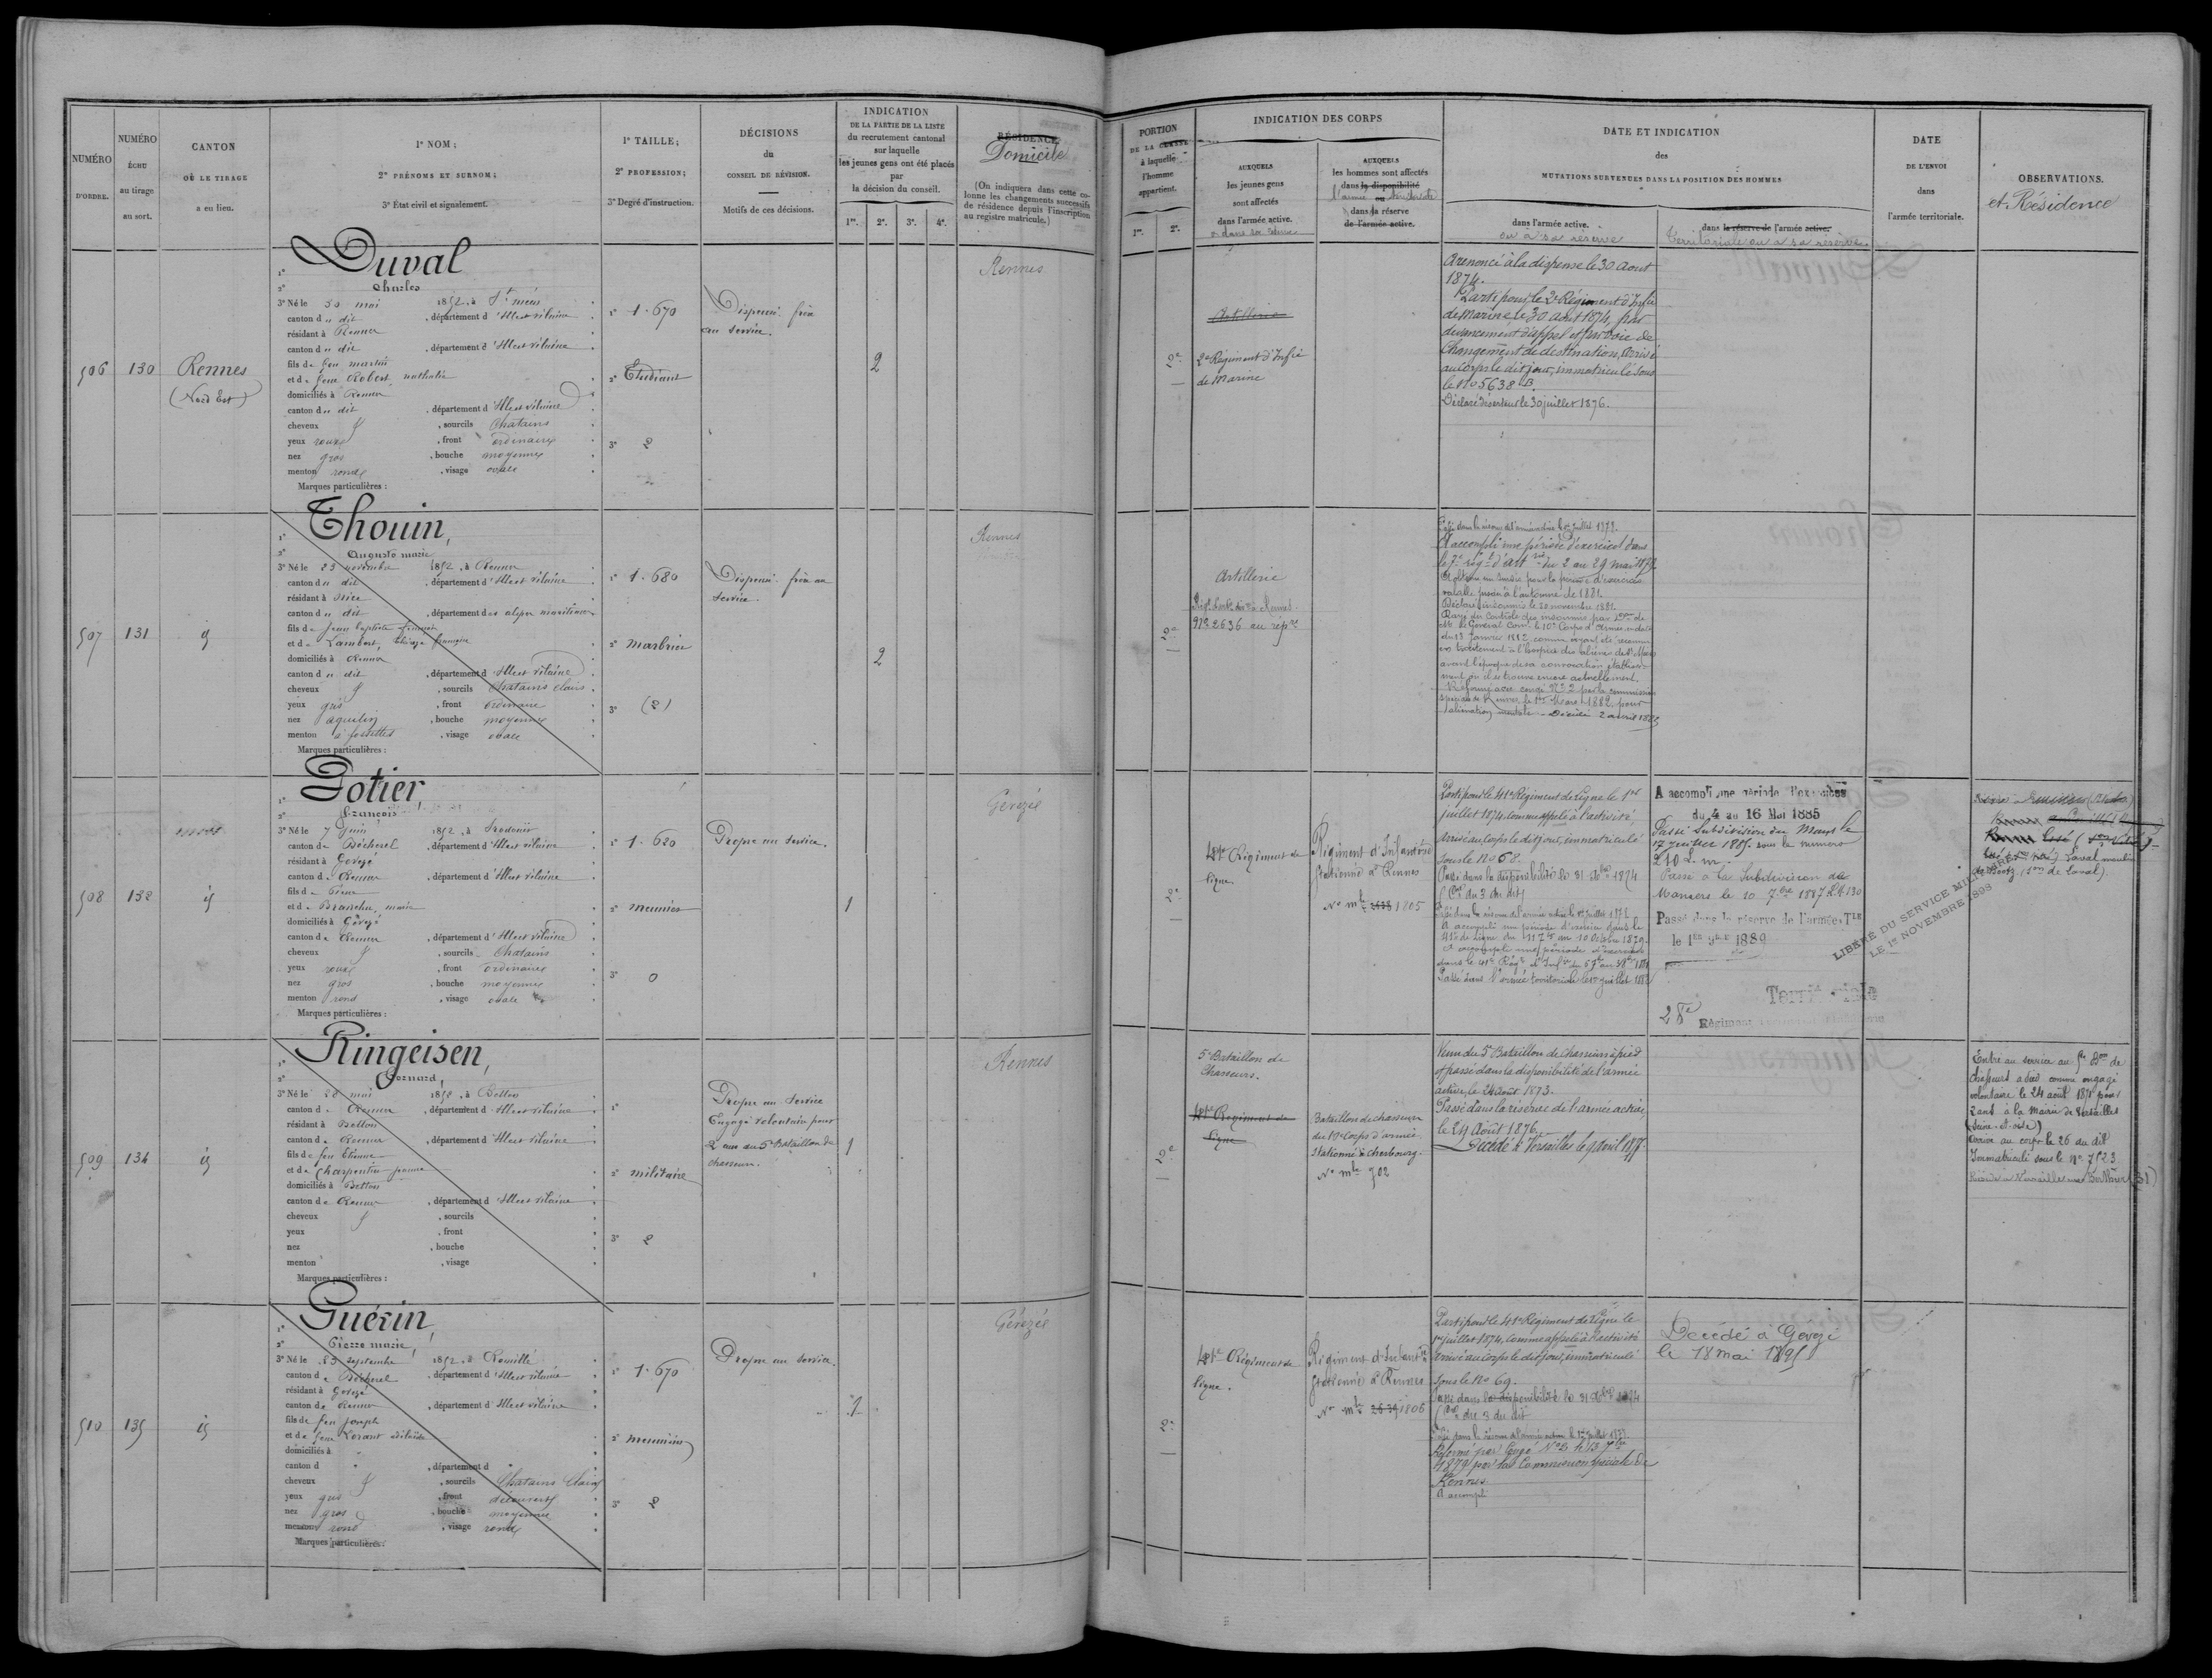 NUMÉRO
D'ORDRE.
NUMÉRO
ÉCHU
au tirage
au sort.
CANTON
OÙ LE TIRAGE
a eu lieu.
1º NOM;
2º PRÉNOMS ET SURNOM;
3º État civil et signalement.
1º TAILLE;
2º PROFESSION;
3º Degré d'instruction.
DÉCISIONS
du
CONSEIL DE RÉVISION.
Motifs de ces décisions.
INDICATION
DE LA PARTIE DE LA LISTE
du recrutement cantonal
sur laquelle
les jeunes gens ont été placés
par
la décision du conseil.
1re. 2e. 3e. 4e.
RÉSIDENCE
Domicile
(On indiquera dans cette co-
lonne les changements successifs
de résidence depuis l'inscription
au registre matricule.)
506 130 Rennes
(Nord Est)
Duval
1º
2º Charles
3º Né le 30 mai 1852, à St méen
canton du dit, département d'Ille et vilaine
résidant à Rennes
canton du dit, département d'Ille et vilaine
fils de feu martin
et de feue Robert, nathalie
domiciliés à Rennes
canton du dit, département d'Ille et vilaine
cheveux, sourcils Chatains
yeux roux, front ordinaire
nez gros, bouche moyenne
menton rond, visage ovale
Marques particulières :
1º 1.670
2º Etudiant
3º 2
Dispensé. fixe
au service.
2
Rennes
507 131 id
Thouin,
1º
2º Auguste marie
3º Né le 23 novembre 1852, à Rennes
canton du dit, département d'Ille et vilaine
résidant à Nice
canton du dit, département des alpes maritimes
fils de Jean baptiste
et de Lambert, thérèse françoise
domiciliés à Rennes
canton du dit, département d'Ille et vilaine
cheveux, sourcils Chatains clairs
yeux gris, front ordinaire
nez aquilin, bouche moyenne
menton à fossettes, visage ovale
Marques particulières :
1º 1.680
2º marbrier
3º (2)
Dispensé. fixe au
service.
2
Rennes
508 132 id
Potier,
1º
2º François
3º Né le 7 Juin 1852, à
canton de Bécherel, département d'Ille et vilaine
résidant à Gévezé
canton de Rennes, département d'Ille et vilaine
fils de Pierre
et de marie
domiciliés à Gévezé
canton de Rennes, département d'Ille et vilaine
cheveux, sourcils Chatains
yeux roux, front ordinaire
nez gros, bouche moyenne
menton rond, visage ovale
Marques particulières :
1º 1.620
2º meunier
3º 0
Propre au Service.
1
Gévezé
509 134 id
Ringeisen,
1º
2º
3º Né le 28 mai 1852, à Betton
canton de Rennes, département d'Ille et vilaine
résidant à Betton
canton de Rennes, département d'Ille et vilaine
fils de feu Etienne
et de Charpentier jeanne
domiciliés à Betton
canton de Rennes, département d'Ille et vilaine
cheveux, sourcils
yeux, front
nez, bouche
menton, visage
Marques particulières :
1º
2º militaire
3º 2
Propre au Service
Engagé volontaire pour
2 ans au 5e Bataillon de
chasseurs.
1
Rennes
510 135 id
Guérin,
1º
2º Pierre marie
3º Né le 23 septembre 1852, à Romillé
canton de Bécherel, département d'Ille et vilaine
résidant à Gévezé
canton de Rennes, département d'Ille et vilaine
fils de feu joseph
et de feue
domiciliés à
canton d, département d
cheveux, sourcils Chatains Clairs
yeux gris, front découvert
nez gros, bouche moyenne
menton rond, visage rond
Marques particulières.
1º 1.670
2º meunier
3º 2
Propre au service.
1
Gévezé
PORTION
DE LA CLASSE
à laquelle
l'homme
appartient.
1re. 2e.
INDICATION DES CORPS
AUXQUELS
les jeunes gens
sont affectés
dans l'armée active.
ou dans sa réserve
AUXQUELS
les hommes sont affectés
dans la disponibilité
ou
l'armée territoriale
dans la réserve
de l'armée active.
DATE ET INDICATION
des
MUTATIONS SURVENUES DANS LA POSITION DES HOMMES
dans l'armée active.
ou à sa réserve
dans la réserve de l'armée active.
territoriale ou à sa réserve
DATE
DE L'ENVOI
dans
l'armée territoriale.
OBSERVATIONS.
et Résidence
2e
Artillerie
2e Régiment d'Infie
de Marine
A renoncé à la dispense le 30 Aout
1874.
Parti pour le 2e Régiment d'Infie
de Marine le 30 Aout 1874, par
devancement d'appel et par voie de
Changement de destination, Arrivé
au Corps le dit jour, immatriculé sous
le No 5638 B.
Déclaré déserteur le 30 juillet 1876.
2e
Artillerie
No 2636 au repre
Passé dans la réserve de l'armée active le 1er juillet 1878.
A accompli une période d'exercices dans
le 7e Régt d'Art. du 2 au 29 mai 1879.
valable jusqu'à l'automne de 1881.
Déclaré insoumis le 20 novembre 1881.
Rayé du Contrôle des insoumis par Don de
Mr le Général Comt le 10e Corps d'Armée, en date
du 13 Janvier 1882, comme ayant été reconnu
en traitement à l'hospice des aliénés de St Méen
avant l'époque de sa convocation, établisse-
ment où il se trouve encore actuellement.
Réformé avec congé No 2 par la commission
spéciale de Rennes le 1er Mars 1882, pour
aliénation mentale. Décédé 2 avril 1885
2e
41e Régiment de
ligne.
Régiment d'Infanterie
stationné à Rennes
No mle 1805
Parti pour le 41e Régiment de Ligne le 1er
juillet 1874, Comme appelé à l'activité,
Arrivé au Corps le dit jour, immatriculé
sous le No 68.
Passé dans la disponibilité le 31 Xbre 1874
(Con du 3 du dit)
Passé dans la réserve de l'armée active le 1er juillet 1878
A accompli une période d'exercice dans le
41e de Ligne du 11 7bre au 10 Octobre 1879.
A accompli une période d'exercices
dans le 41e Régt d'Infie
Passé dans l'armée territoriale le 1er juillet 1883
A accompli une période d'exercices
du 4 au 16 Mai 1885
Passé Subdivision du Mans le
17 Juillet 1885. sous le numéro
210 L.m.
Passé à la Subdivision de
Mamers le 10 7bre 1887
Passé dans la réserve de l'armée Tle
le 1er 9bre 1889
Territoriale
28e Régiment
LIBÉRÉ DU SERVICE MILITAIRE
LE 1er NOVEMBRE 1898
Laval
(son de Laval).
2e
5e Bataillon de
Chasseurs.
41e Régiment de
ligne
Bataillon de chasseurs
du 10e Corps d'armée
stationné à Cherbourg.
No mle 502
Venu du 5e Bataillon de Chasseurs à pied
et passé dans la disponibilité de l'armée
active, le 24 Aout 1873.
Passé dans la réserve de l'armée active,
le 24 Août 1876.
Décédé à Versailles le 9 avril 1877.
Entré au service au 5e Bon de
chasseurs à pied comme engagé
volontaire le 24 août 1871 pour
2 ans à la Mairie de Versailles
(Seine-et-oise)
Arrivé au corps le 26 du dit
Immatriculé sous le No 7523
2e
41e Régiment de
ligne.
Régiment d'Infantie
stationné à Rennes
No mle 2639 1806
Parti pour le 41e Régiment de Ligne le
1er juillet 1874, Comme appelé à l'activité
arrivé au Corps le dit jour, immatriculé
sous le No 69.
Passé dans la disponibilité le 31 Xbre 1874
(Don du 3 du dit
Passé dans la réserve de l'armée active le 1er juillet 1878.
Réformé par Congé No 2 le 13 7bre
1879 par la Commission spéciale de
Rennes.
A accompli
Décédé à Gévezé
le 18 mai 1895